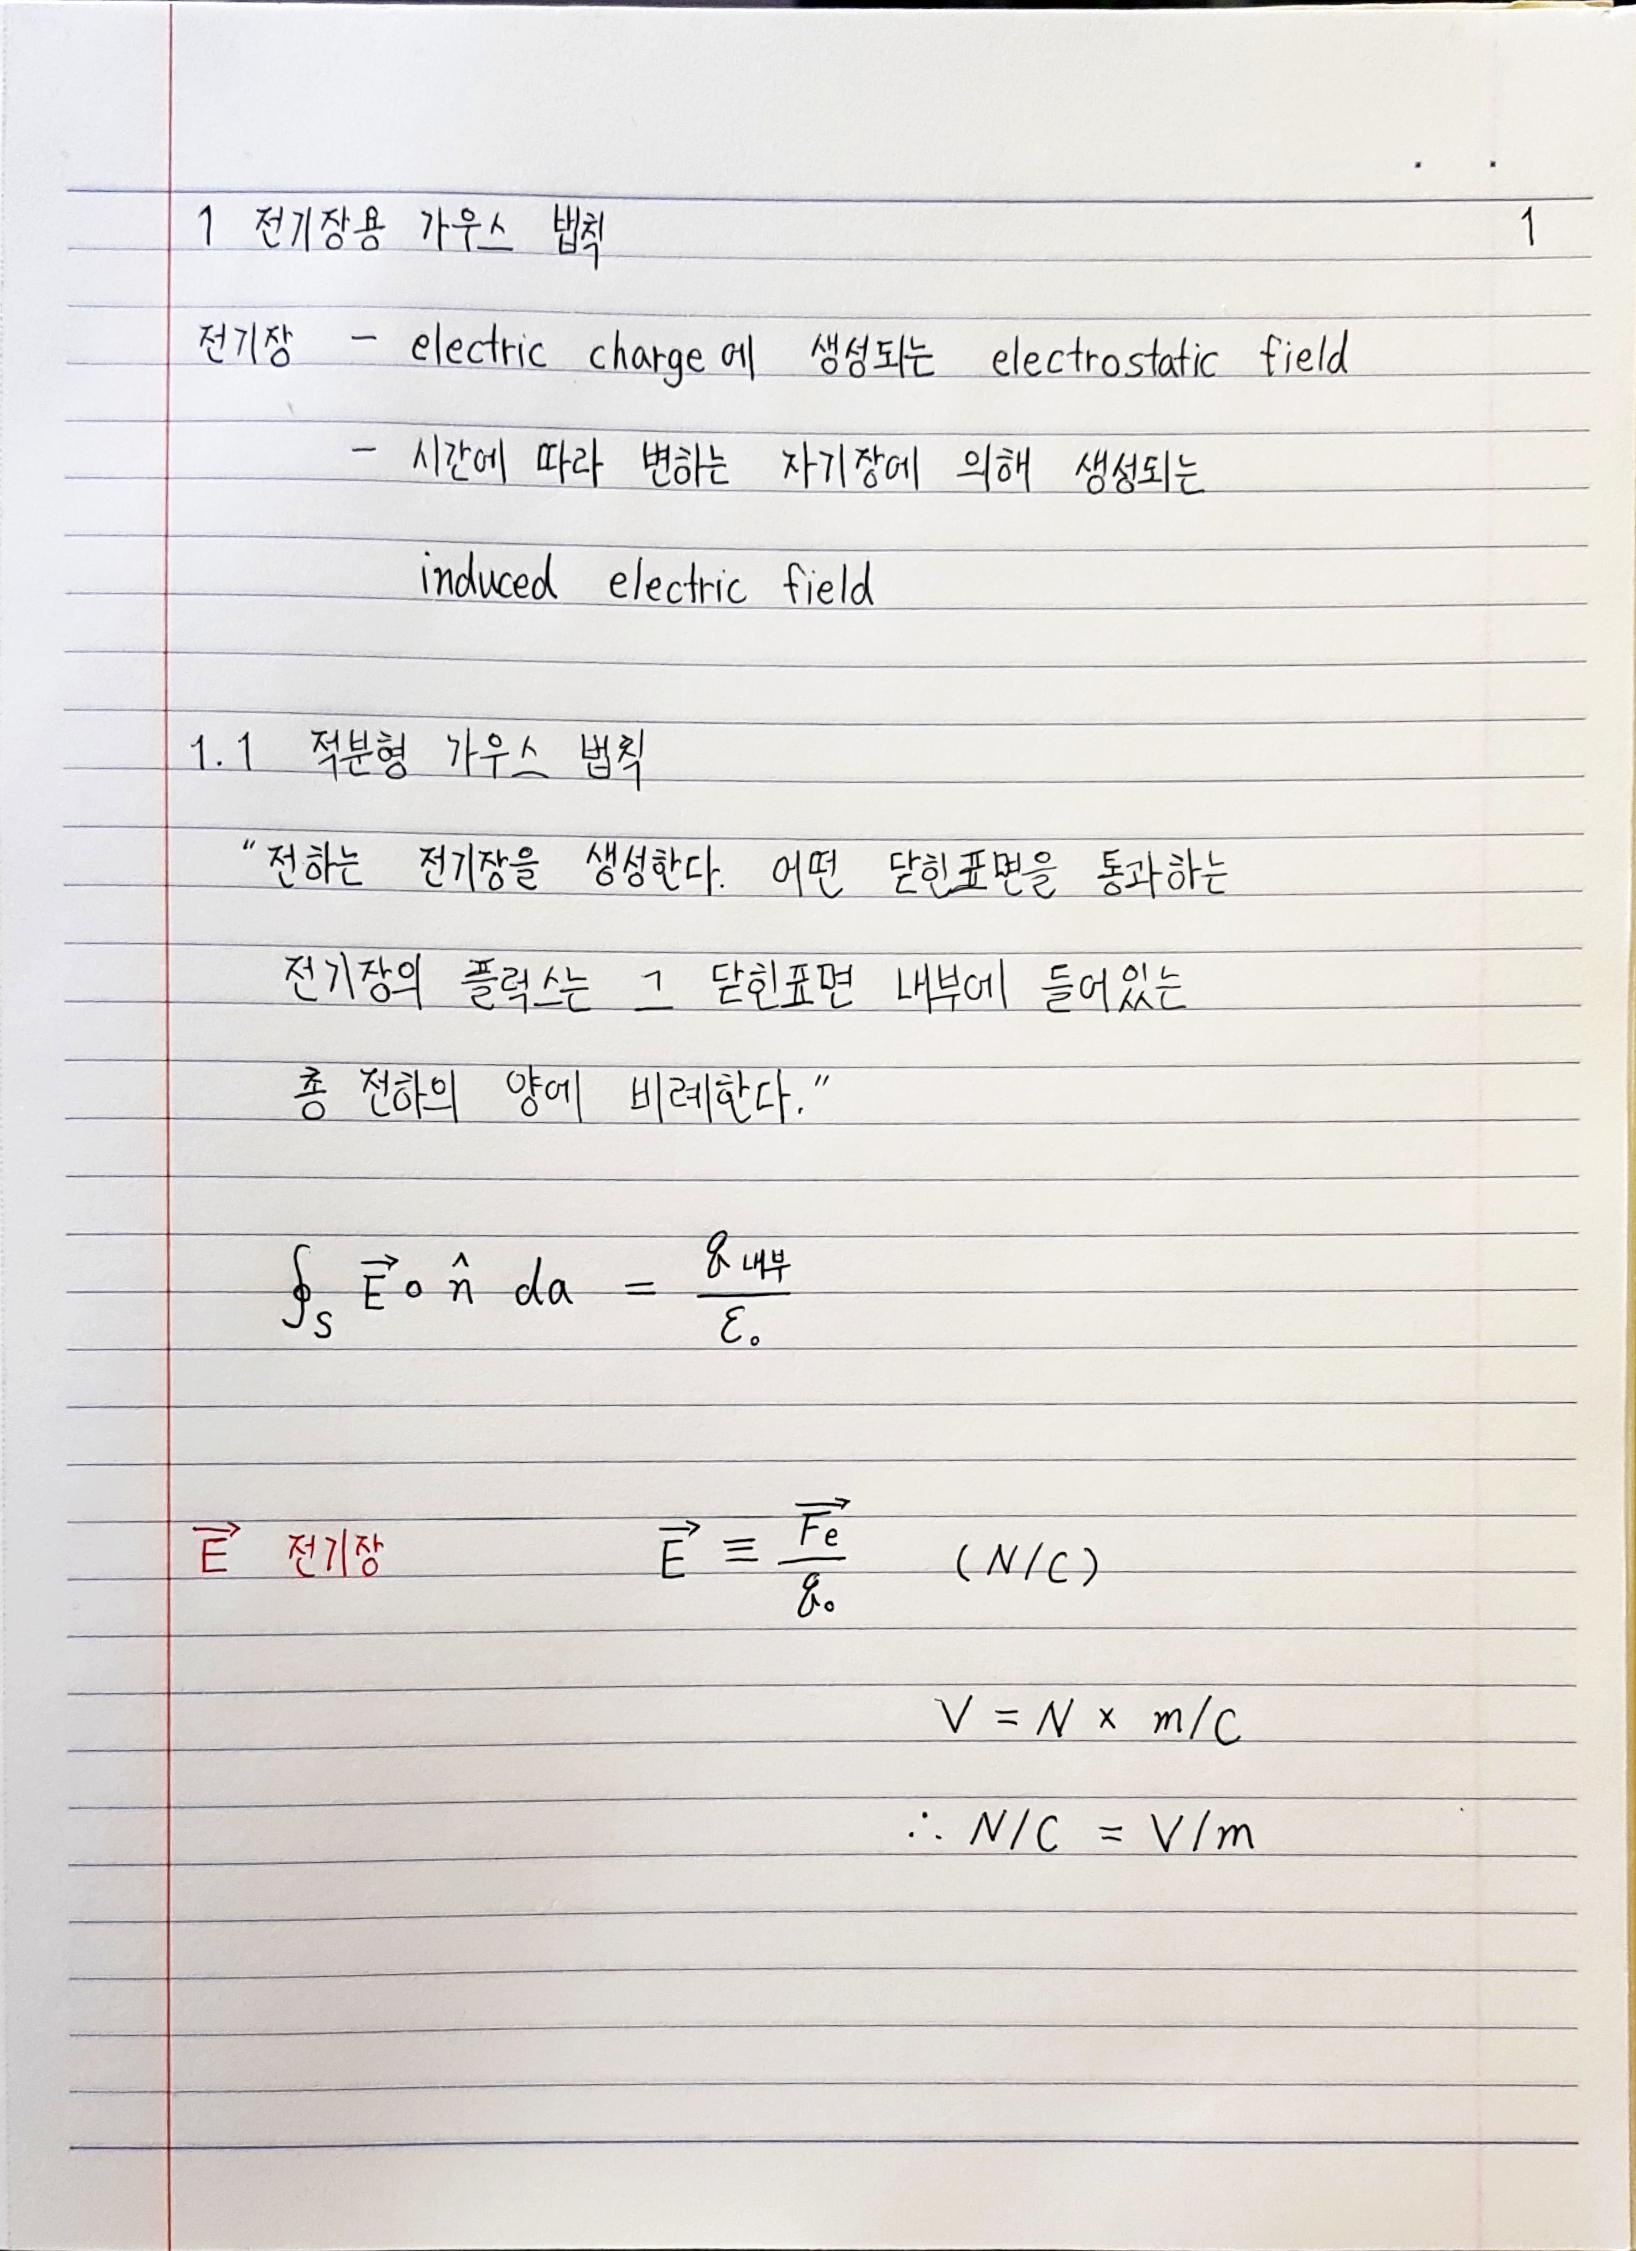 1 전기장용 가우스 법칙 1
전기장 - electric charge에 생성되는 electrostatic field
- 시간에 따라 변하는 자기장에 의해 생성되는
induced electric field
1.1 적분형 가우스 법칙
"전하는 전기장을 생성한다. 어떤 닫힌표면을 통과하는
전기장의 플럭스는 그 닫힌표면 내부에 들어있는
총 전하의 양에 비례한다."
∮_S E⃗ ∘ n̂ da = q내부 / ε₀
E⃗ 전기장 E⃗ ≡ F⃗e / q₀ (N/C)
V = N × m/C
∴ N/C = V/m